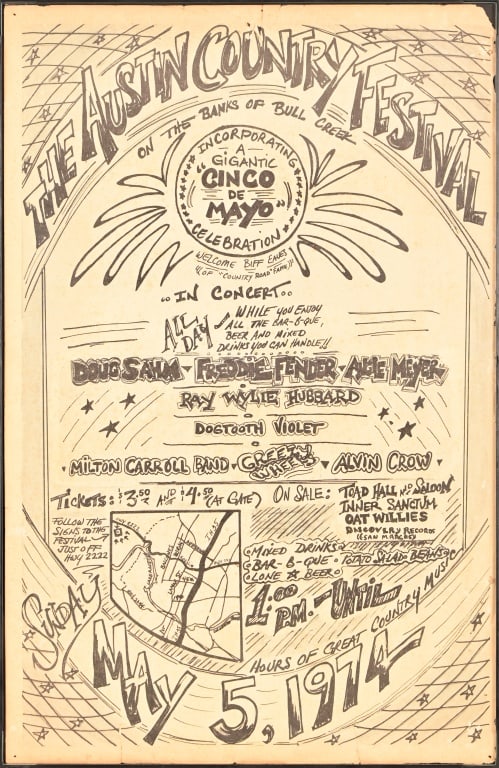 THE AUSTIN COUNTRY FESTIVAL
ON THE BANKS OF BULL CREEK
INCORPORATING
A
GIGANTIC
"CINCO
DE
MAYO"
CELEBRATION
WELCOME BIFF
OF "COUNTRY ROAD" FAME!!
..IN CONCERT..
ALL DAY
WHILE YOU ENJOY
ALL THE BAR-B-QUE,
BEER AND MIXED
DRINKS YOU CAN HANDLE!!
DOUG SAHM - FREDDIE FENDER - AUGIE MEYER
RAY WYLIE HUBBARD
DOGTOOTH VIOLET
MILTON CARROLL BAND - GREEZY WHEELS - ALVIN CROW
TICKETS: $3.50 AND $4.50 (AT GATE)
ON SALE: TOAD HALL SALOON
INNER SANCTUM
OAT WILLIES
DISCOVERY RECORDS
(SAN MARCOS)
FOLLOW THE
SIGNS TO THE
FESTIVAL
JUST OFF
HWY 2222
MIXED DRINKS
BAR-B-QUE POTATO SALAD-BEANS
LONE ★ BEER
1:00
P.M.-UNTIL
HOURS OF GREAT COUNTRY MUSIC
SUNDAY
MAY 5, 1974